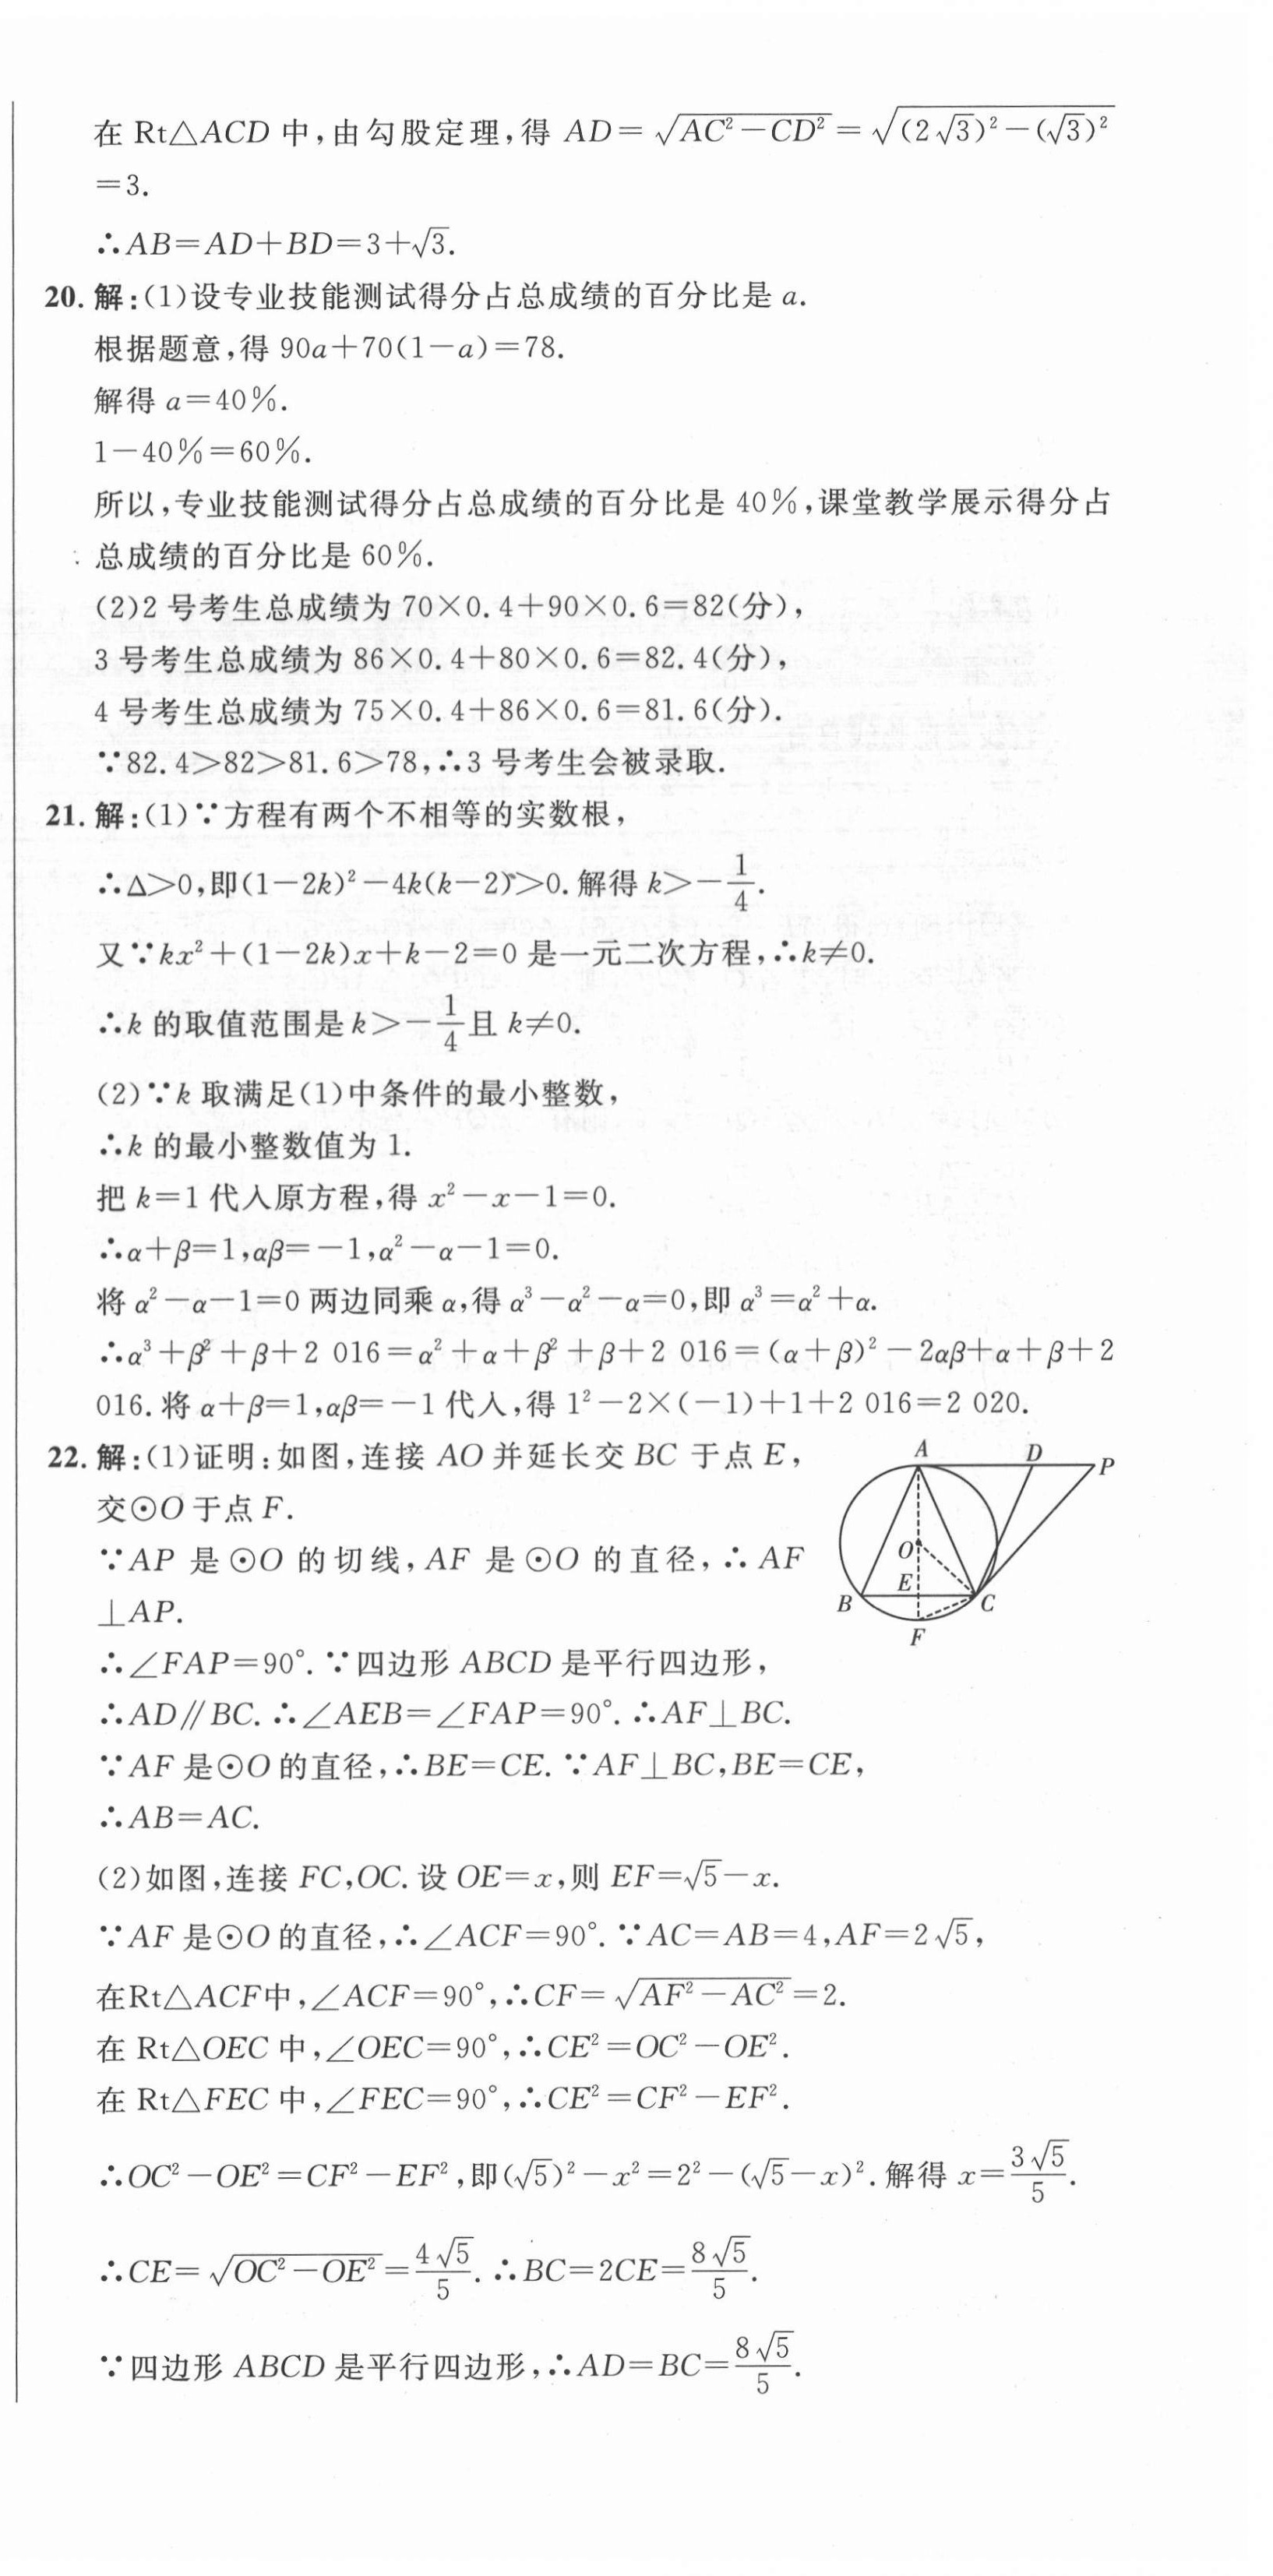 在 Rt△ACD 中,由勾股定理,得 AD=√(AC²-CD²)=√((2√3)²-(√3)²)
=3.
∴AB=AD+BD=3+√3.
20. 解:(1)设专业技能测试得分占总成绩的百分比是 a.
根据题意,得 90a+70(1-a)=78.
解得 a=40%.
1-40%=60%.
所以,专业技能测试得分占总成绩的百分比是 40%,课堂教学展示得分占
总成绩的百分比是 60%.
(2)2 号考生总成绩为 70×0.4+90×0.6=82(分),
3 号考生总成绩为 86×0.4+80×0.6=82.4(分),
4 号考生总成绩为 75×0.4+86×0.6=81.6(分).
∵82.4>82>81.6>78,∴3 号考生会被录取.
21. 解:(1)∵方程有两个不相等的实数根,
∴Δ>0,即(1-2k)²-4k(k-2)>0.解得 k>-1/4.
又∵kx²+(1-2k)x+k-2=0 是一元二次方程,∴k≠0.
∴k 的取值范围是 k>-1/4且 k≠0.
(2)∵k 取满足(1)中条件的最小整数,
∴k 的最小整数值为 1.
把 k=1 代入原方程,得 x²-x-1=0.
∴α+β=1,αβ=-1,α²-α-1=0.
将 α²-α-1=0 两边同乘 α,得 α³-α²-α=0,即 α³=α²+α.
∴α³+β²+β+2 016=α²+α+β²+β+2 016=(α+β)²-2αβ+α+β+2
016.将 α+β=1,αβ=-1 代入,得 1²-2×(-1)+1+2 016=2 020.
22. 解:(1)证明:如图,连接 AO 并延长交 BC 于点 E,
交⊙O 于点 F.
∵AP 是⊙O 的切线,AF 是⊙O 的直径,∴AF
⊥AP.
A D P
O
E
B C
F
∴∠FAP=90°.∵四边形 ABCD 是平行四边形,
∴AD∥BC.∴∠AEB=∠FAP=90°.∴AF⊥BC.
∵AF 是⊙O 的直径,∴BE=CE.∵AF⊥BC,BE=CE,
∴AB=AC.
(2)如图,连接 FC,OC.设 OE=x,则 EF=√5-x.
∵AF 是⊙O 的直径,∴∠ACF=90°.∵AC=AB=4,AF=2√5,
在Rt△ACF中,∠ACF=90°,∴CF=√(AF²-AC²)=2.
在 Rt△OEC 中,∠OEC=90°,∴CE²=OC²-OE².
在 Rt△FEC 中,∠FEC=90°,∴CE²=CF²-EF².
∴OC²-OE²=CF²-EF²,即(√5)²-x²=2²-(√5-x)².解得 x=3√5/5.
∴CE=√(OC²-OE²)=4√5/5.∴BC=2CE=8√5/5.
∵四边形 ABCD 是平行四边形,∴AD=BC=8√5/5.